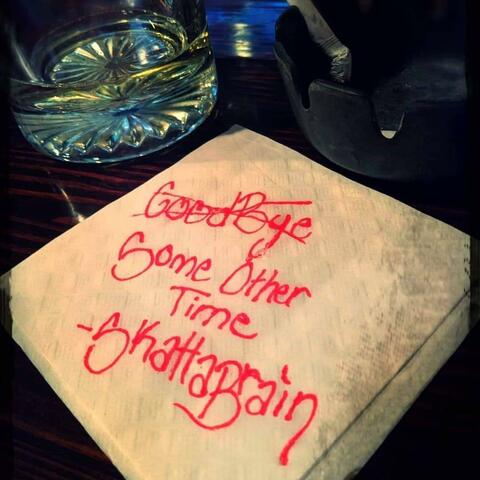 GoodBye
Some Other
Time
-SkattaBrain